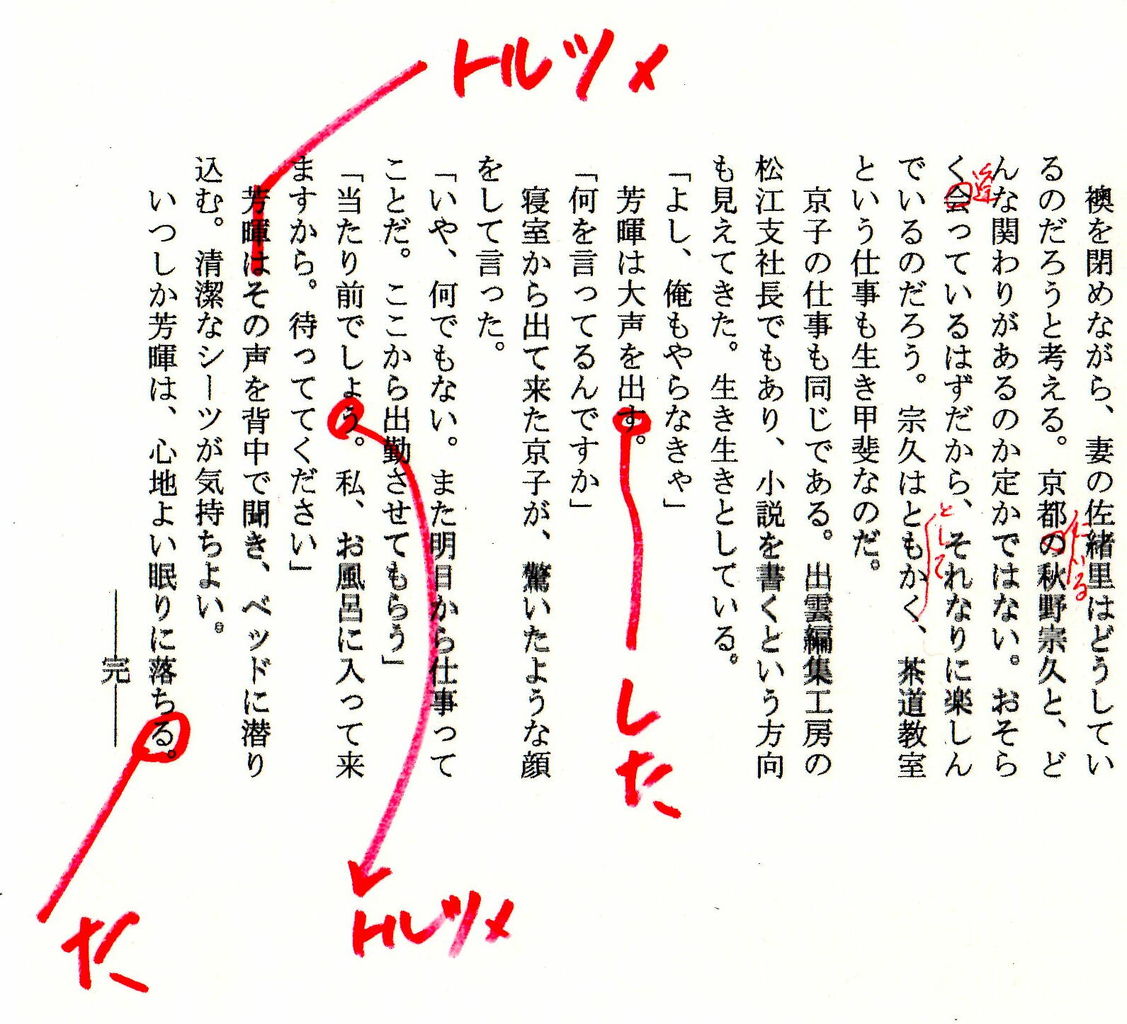 襖を閉めながら、妻の佐緒里はどうしてい
るのだろうと考える。京都の秋野宗久と、ど
にいる
んな関わりがあるのか定かではない。おそら
逢
く会っているはずだから、それなりに楽しん
として
でいるのだろう。宗久はともかく、茶道教室
という仕事も生き甲斐なのだ。
京子の仕事も同じである。出雲編集工房の
松江支社長でもあり、小説を書くという方向
も見えてきた。生き生きとしている。
「よし、俺もやらなきゃ」
芳暉は大声を出す。
した
「何を言ってるんですか」
寝室から出て来た京子が、驚いたような顔
をして言った。
「いや、何でもない。また明日から仕事って
ことだ。ここから出勤させてもらう」
「当たり前でしょう。私、お風呂に入って来
トルツメ
ますから。待っててください」
芳暉はその声を背中で聞き、ベッドに潜り
トルツメ
込む。清潔なシーツが気持ちよい。
いつしか芳暉は、心地よい眠りに落ちる。
た
完